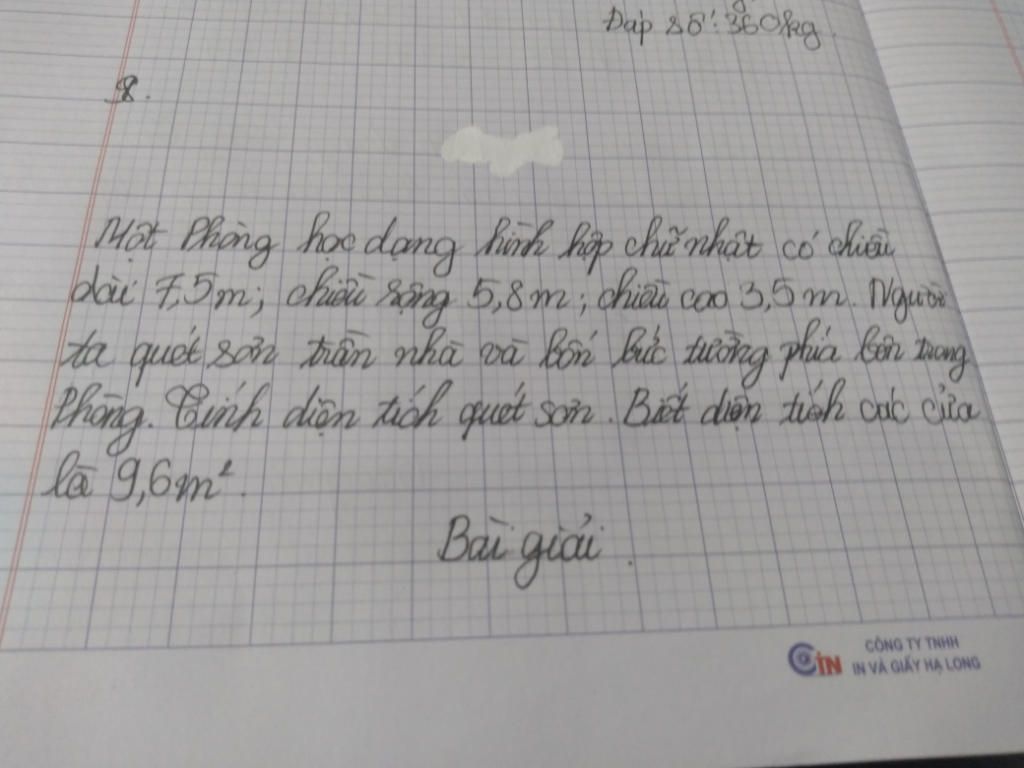 Đáp số: 360kg
8.
Một Phòng học dạng hình hộp chữ nhật có chiều
dài 7,5m; chiều rộng 5,8m; chiều cao 3,5m. Người
ta quét sơn trần nhà và bốn bức tường phía bên trong
Phòng. Tính diện tích quét sơn. Biết diện tích các cửa
là 9,6m².
Bài giải.
CÔNG TY TNHH
IN VÀ GIẤY HẠ LONG